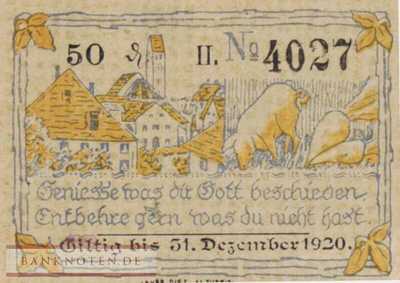 50 ₰ II. No 4027
Geniesse was dir Gott beschieden
Entbehre gern was du nicht hast.
Giltig bis 31. Dezember 1920.
BANKNOTEN.DE